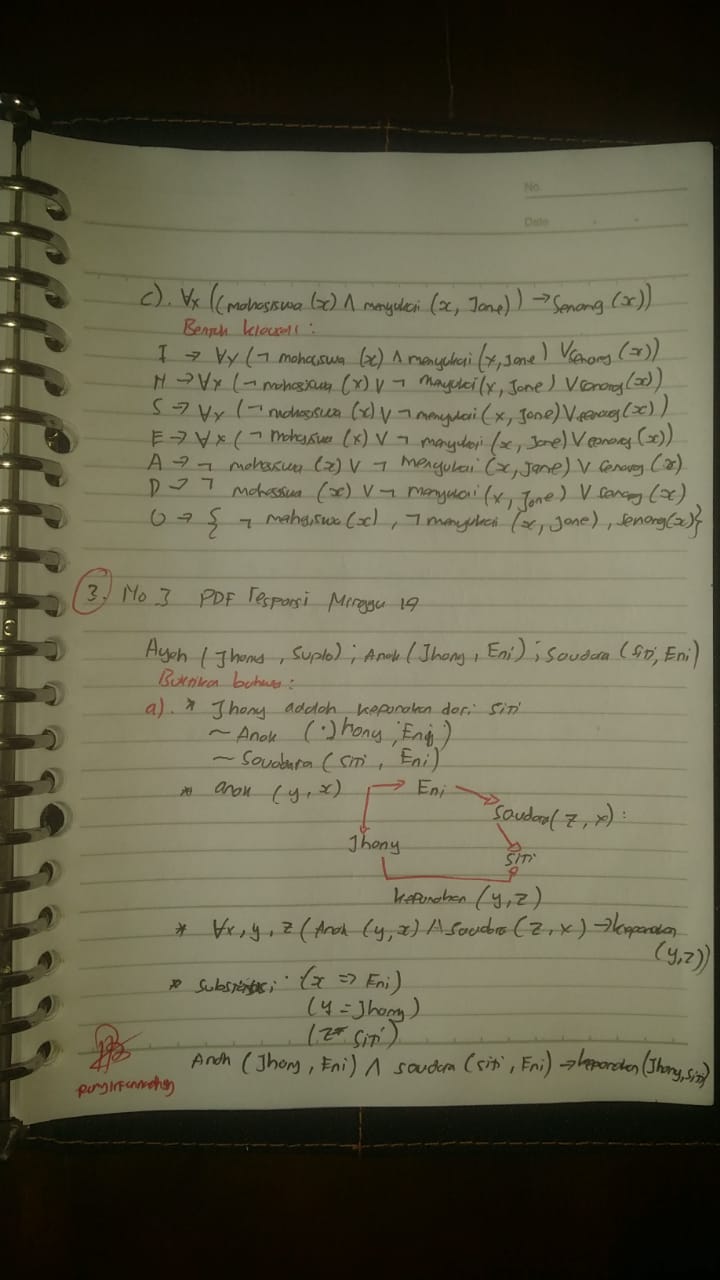 No.
Date
c). ∀x ((mahasiswa (x) ∧ menyukai (x, Jane)) → Senang (x))
Bentuk klausal :
I → ∀x (¬ mahasiswa (x) ∧ menyukai (x, Jane) ∨ senang (x))
N → ∀x (¬ mahasiswa (x) ∨ ¬ menyukai (x, Jane) ∨ senang (x))
S → ∀x (¬ mahasiswa (x) ∨ ¬ menyukai (x, Jane) ∨ senang (x))
E → ∀x (¬ mahasiswa (x) ∨ ¬ menyukai (x, Jane) ∨ senang (x))
A → ¬ mahasiswa (x) ∨ ¬ menyukai (x, Jane) ∨ senang (x)
D → ¬ mahasiswa (x) ∨ ¬ menyukai (x, Jane) ∨ senang (x)
O → { ¬ mahasiswa (x), ¬ menyukai (x, Jane), senang (x)}
3. No 3 PDF responsi Minggu 19
Ayah (Jhony, Supto) ; Anak (Jhony, Eni) ; Saudara (Siti, Eni)
Buktikan bahwa :
a). * Jhony adalah keponakan dari Siti
~ Anak (Jhony, Eni)
~ Saudara (Siti, Eni)
* anak (y, x) → Eni
Saudara (z, x) :
Jhony
Siti
keponakan (y, z)
* ∀x, y, z (Anak (y, x) ∧ Saudara (z, x) → keponakan
(y, z))
* Subsitusi : (x => Eni)
(y = Jhony)
(z = Siti)
Anak (Jhony, Eni) ∧ saudara (Siti, Eni) → keponakan (Jhony, Siti)